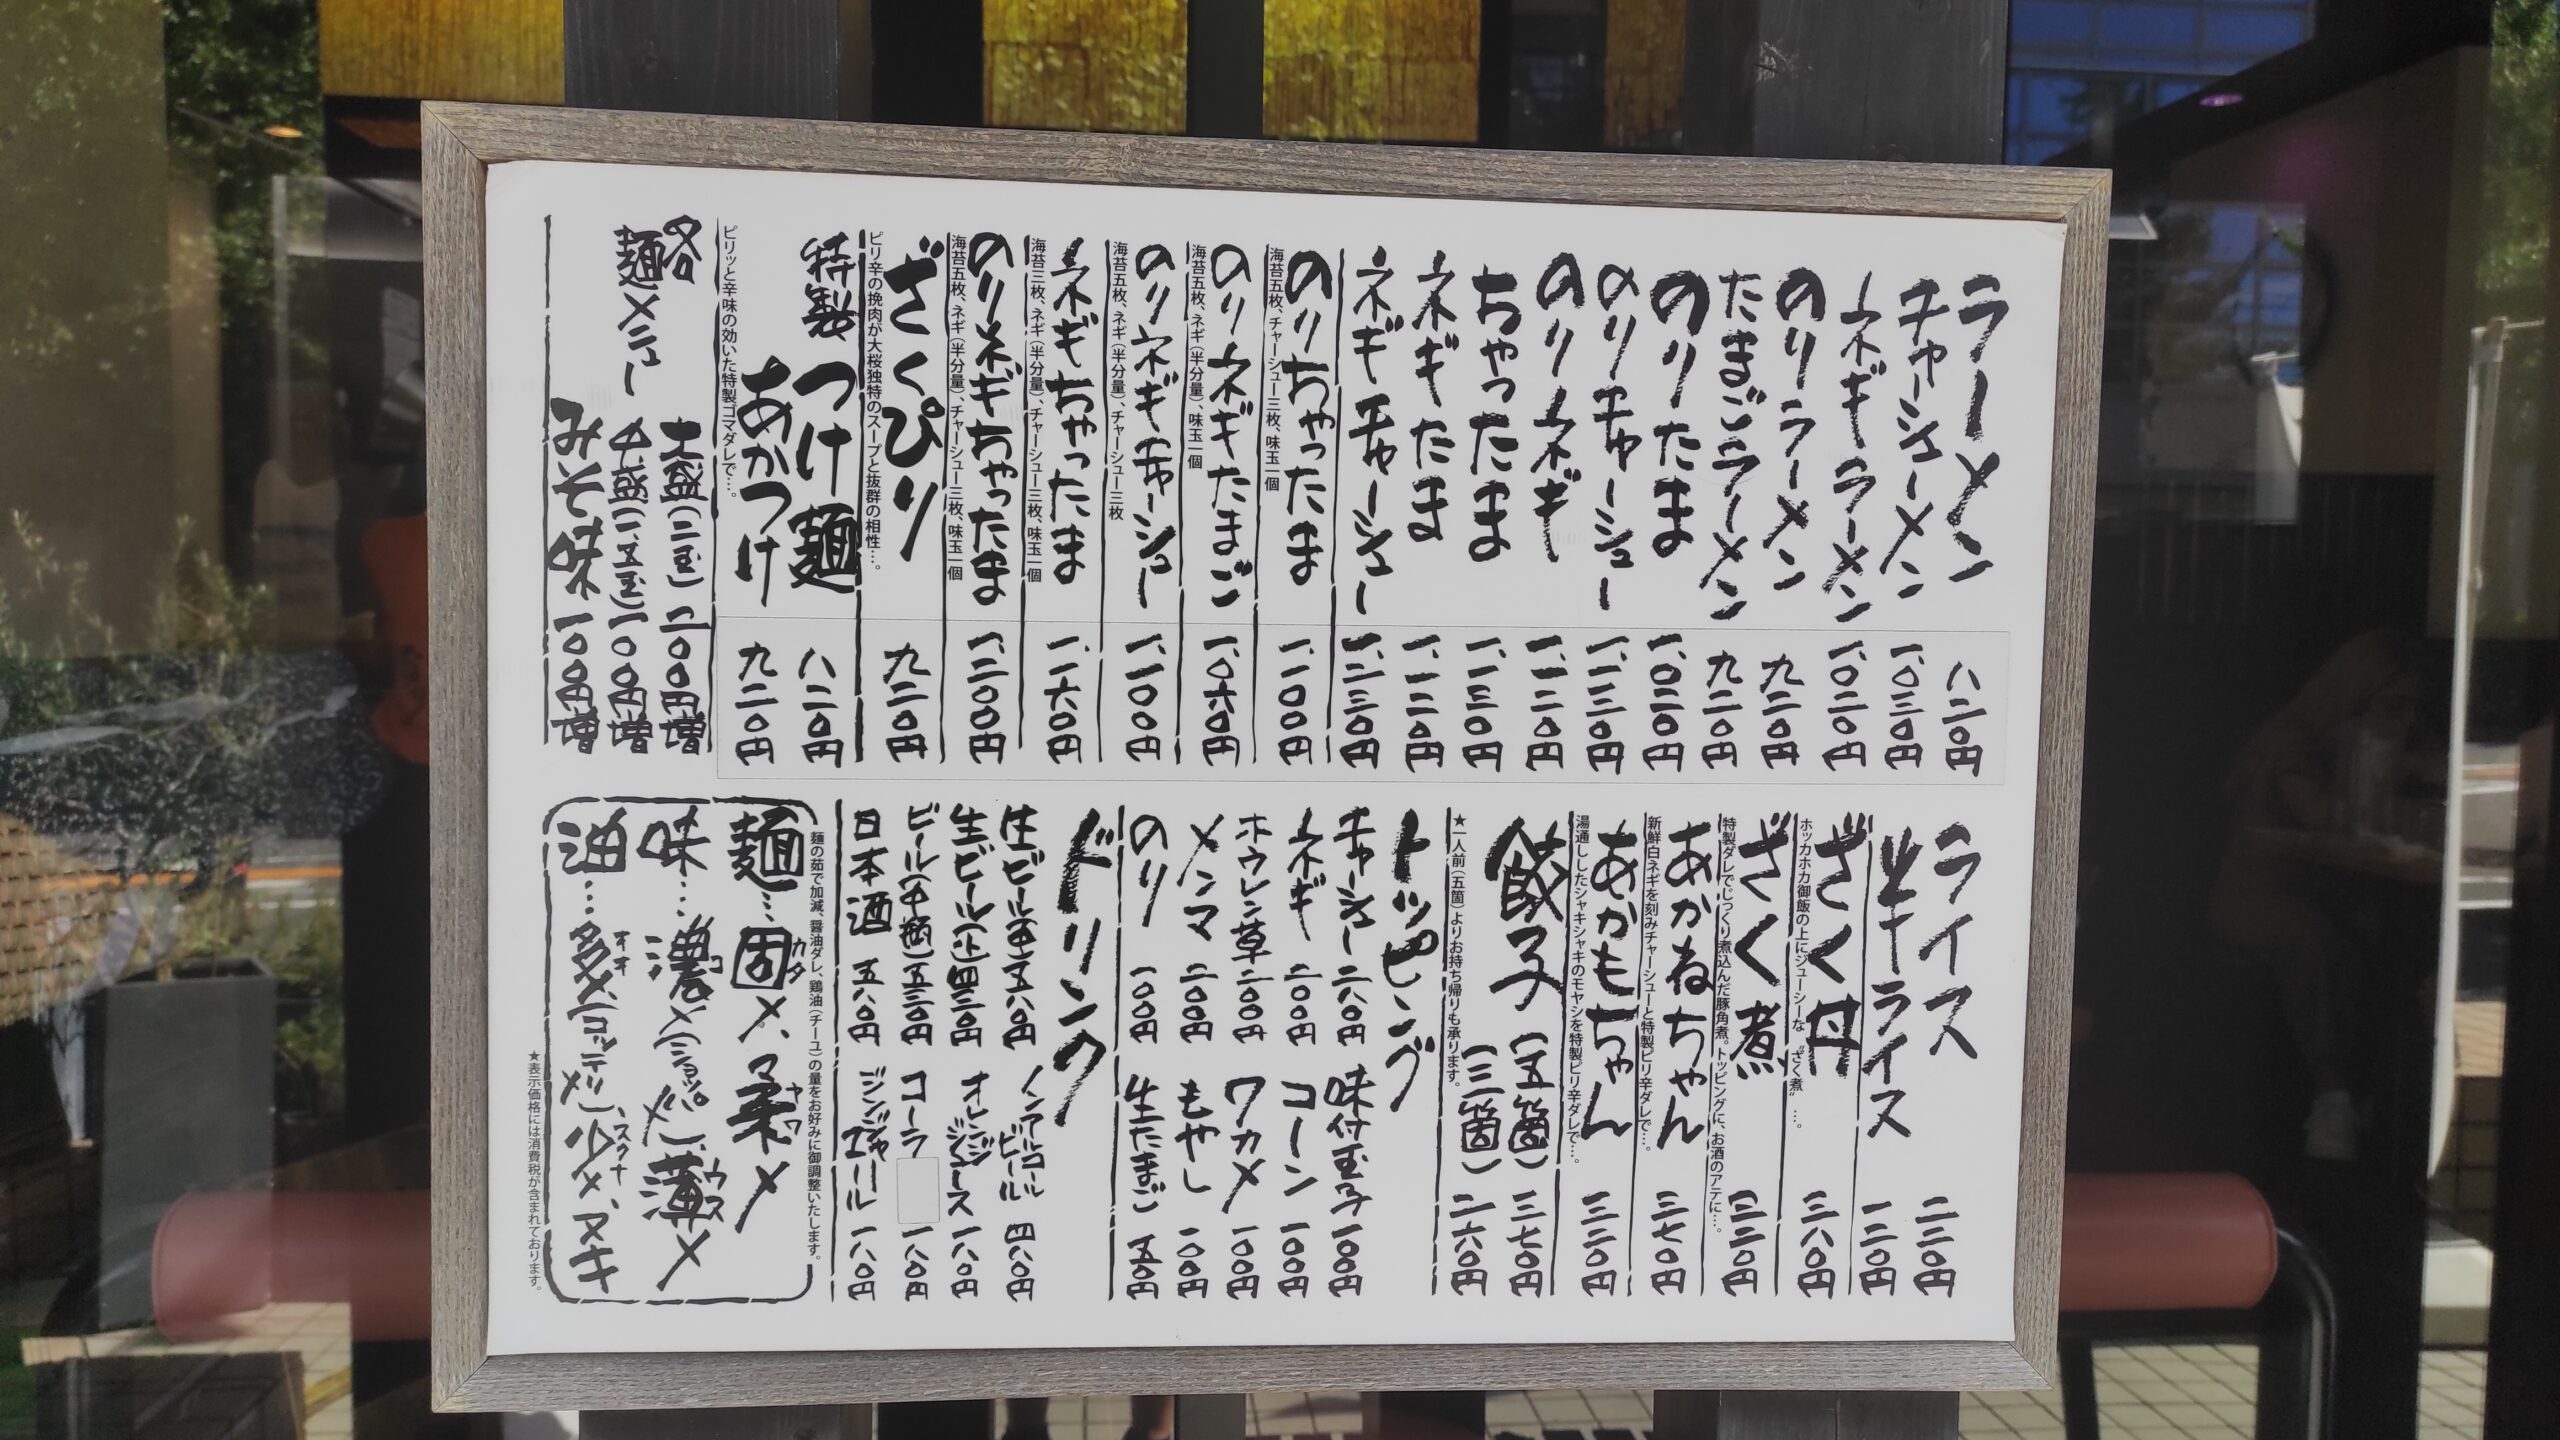 ラーメン 八二〇円
チャーシューメン 一、〇三〇円
ネギラーメン 一、〇二〇円
のりラーメン 九二〇円
たまごラーメン 九二〇円
のりたま 一、〇二〇円
のりチャーシュー 一、一三〇円
のりネギ 一、一二〇円
ちゃったま 一、一三〇円
ネギたま 一、一二〇円
ネギチャーシュー 一、二三〇円
のりちゃったま 一、一〇〇円
海苔五枚、チャーシュー三枚、味玉一個
のりネギたまご 一、〇六〇円
海苔五枚、ネギ(半分量)、味玉一個
のりネギチャーシュー 一、一〇〇円
海苔五枚、ネギ(半分量)、チャーシュー三枚
ネギちゃったま 一、一六〇円
海苔三枚、ネギ(半分量)、チャーシュー三枚、味玉一個
のりネギちゃったま 一、二〇〇円
海苔五枚、ネギ(半分量)、チャーシュー三枚、味玉一個
ざくぴり 九二〇円
ピリ辛の挽肉が大桜独特のスープと抜群の相性…。
特製つけ麺 八二〇円
あかつけ 九二〇円
ピリッと辛味の効いた特製ゴマダレで…。
各麺メニュー
大盛(二玉) 二〇〇円増
中盛(一、五玉) 一〇〇円増
みそ味 一〇〇円増
ライス 二二〇円
半ライス 一二〇円
ざく丼 三八〇円
ホッカホカ御飯の上にジューシーな〝ざく煮〟…。
ざく煮 三二〇円
特製ダレでじっくり煮込んだ豚角煮。トッピングに、お酒のアテに…。
あかねちゃん 三七〇円
新鮮白ネギを刻みチャーシューと特製ピリ辛ダレで…。
あかもちゃん 三二〇円
湯通ししたシャキシャキのモヤシを特製ピリ辛ダレで…。
餃子(五箇) 三七〇円
(三箇) 二六〇円
★一人前(五箇)よりお持ち帰りも承ります。
トッピング
チャーシュー 二八〇円
味付玉子 一〇〇円
ネギ 二〇〇円
コーン 一〇〇円
ホウレン草 二〇〇円
ワカメ 一〇〇円
メンマ 二〇〇円
もやし 一〇〇円
のり 一〇〇円
生たまご 五〇円
ドリンク
生ビール(中) 五八〇円
ノンアルコールビール 四八〇円
生ビール(小) 四三〇円
オレンジジュース 一八〇円
ビール(中瓶) 五三〇円
コーラ 一八〇円
日本酒 五八〇円
ジンジャエール 一八〇円
麺の茹で加減、醤油ダレ、鶏油(チーユ)の量をお好みに御調整いたします。
麺…固メ、柔メ
カタ ヤワ
味…濃メ(ショッパメ)、薄メ
コ ウス
油…多メ(コッテリメ)、少メ、ヌキ
オオ スクナ
★表示価格には消費税が含まれております。